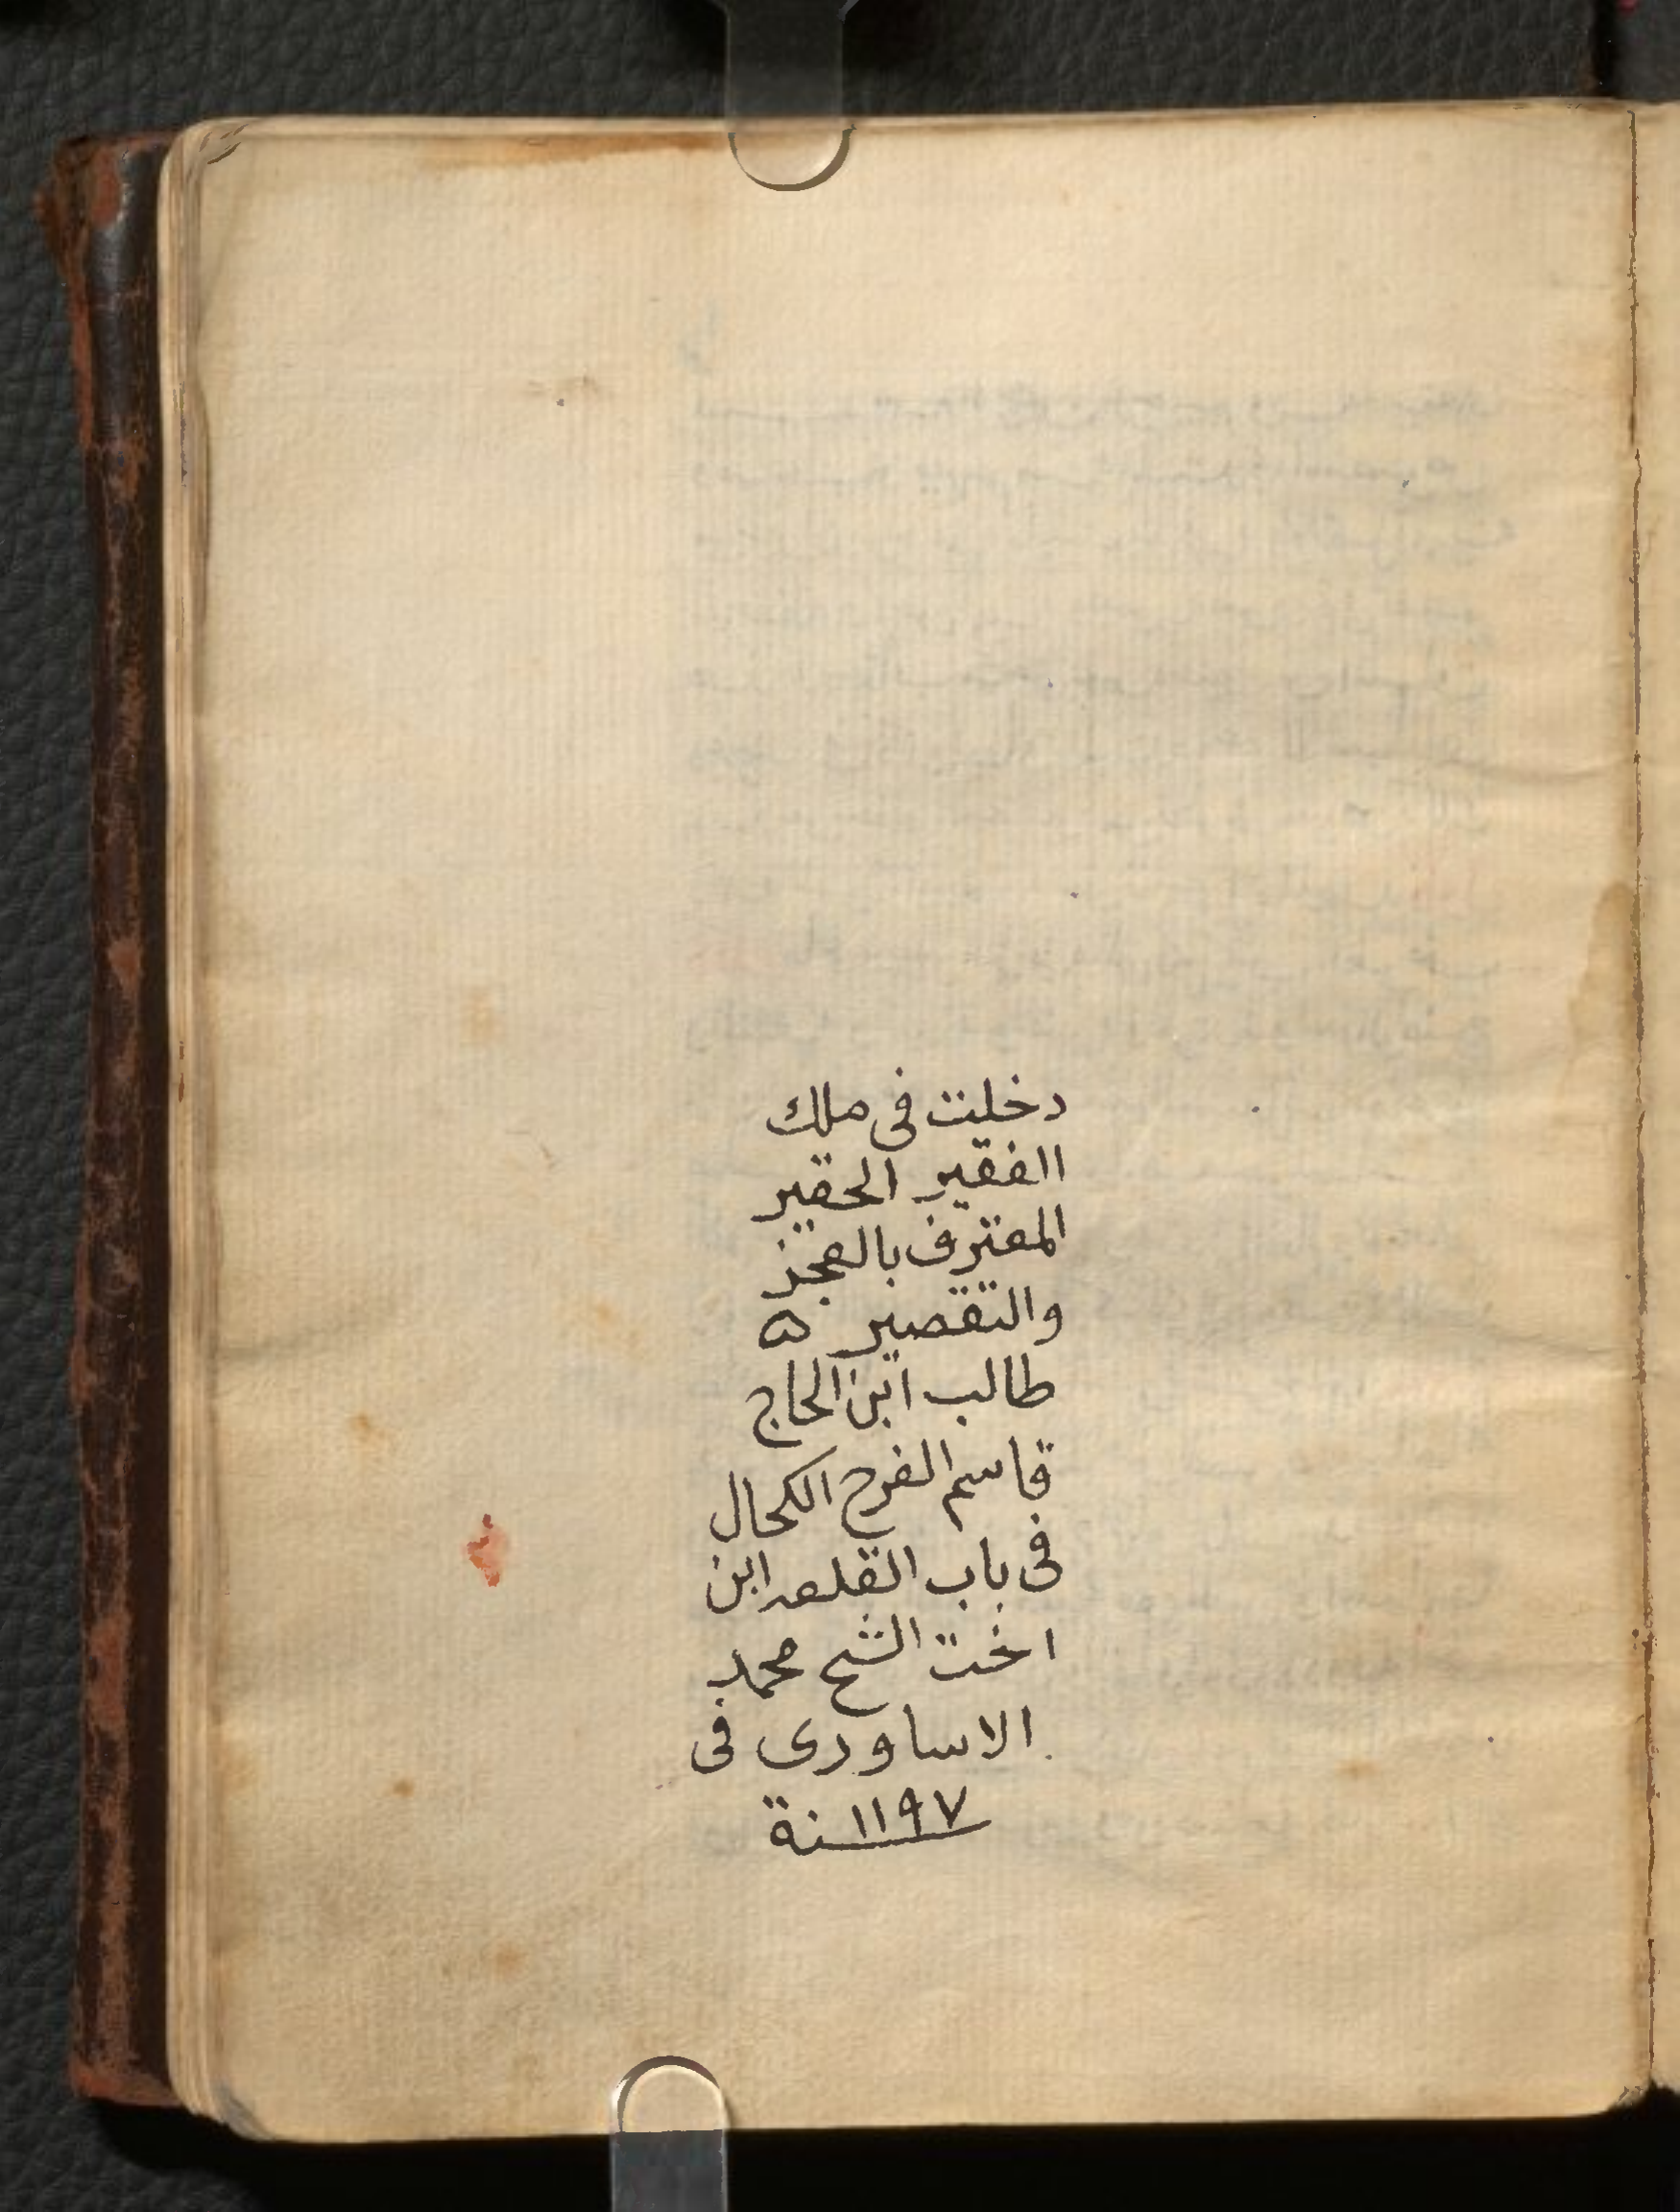 دخلت فى ملك
االفقير الحقير
المعترف بالعجز
والتقصير ه
طالب ابن الحاج
قاسم الفرج الكحال
فى باب القلعه ابن
اخت الشيح محمد
الاساودى فى
١١٩٧ سنة